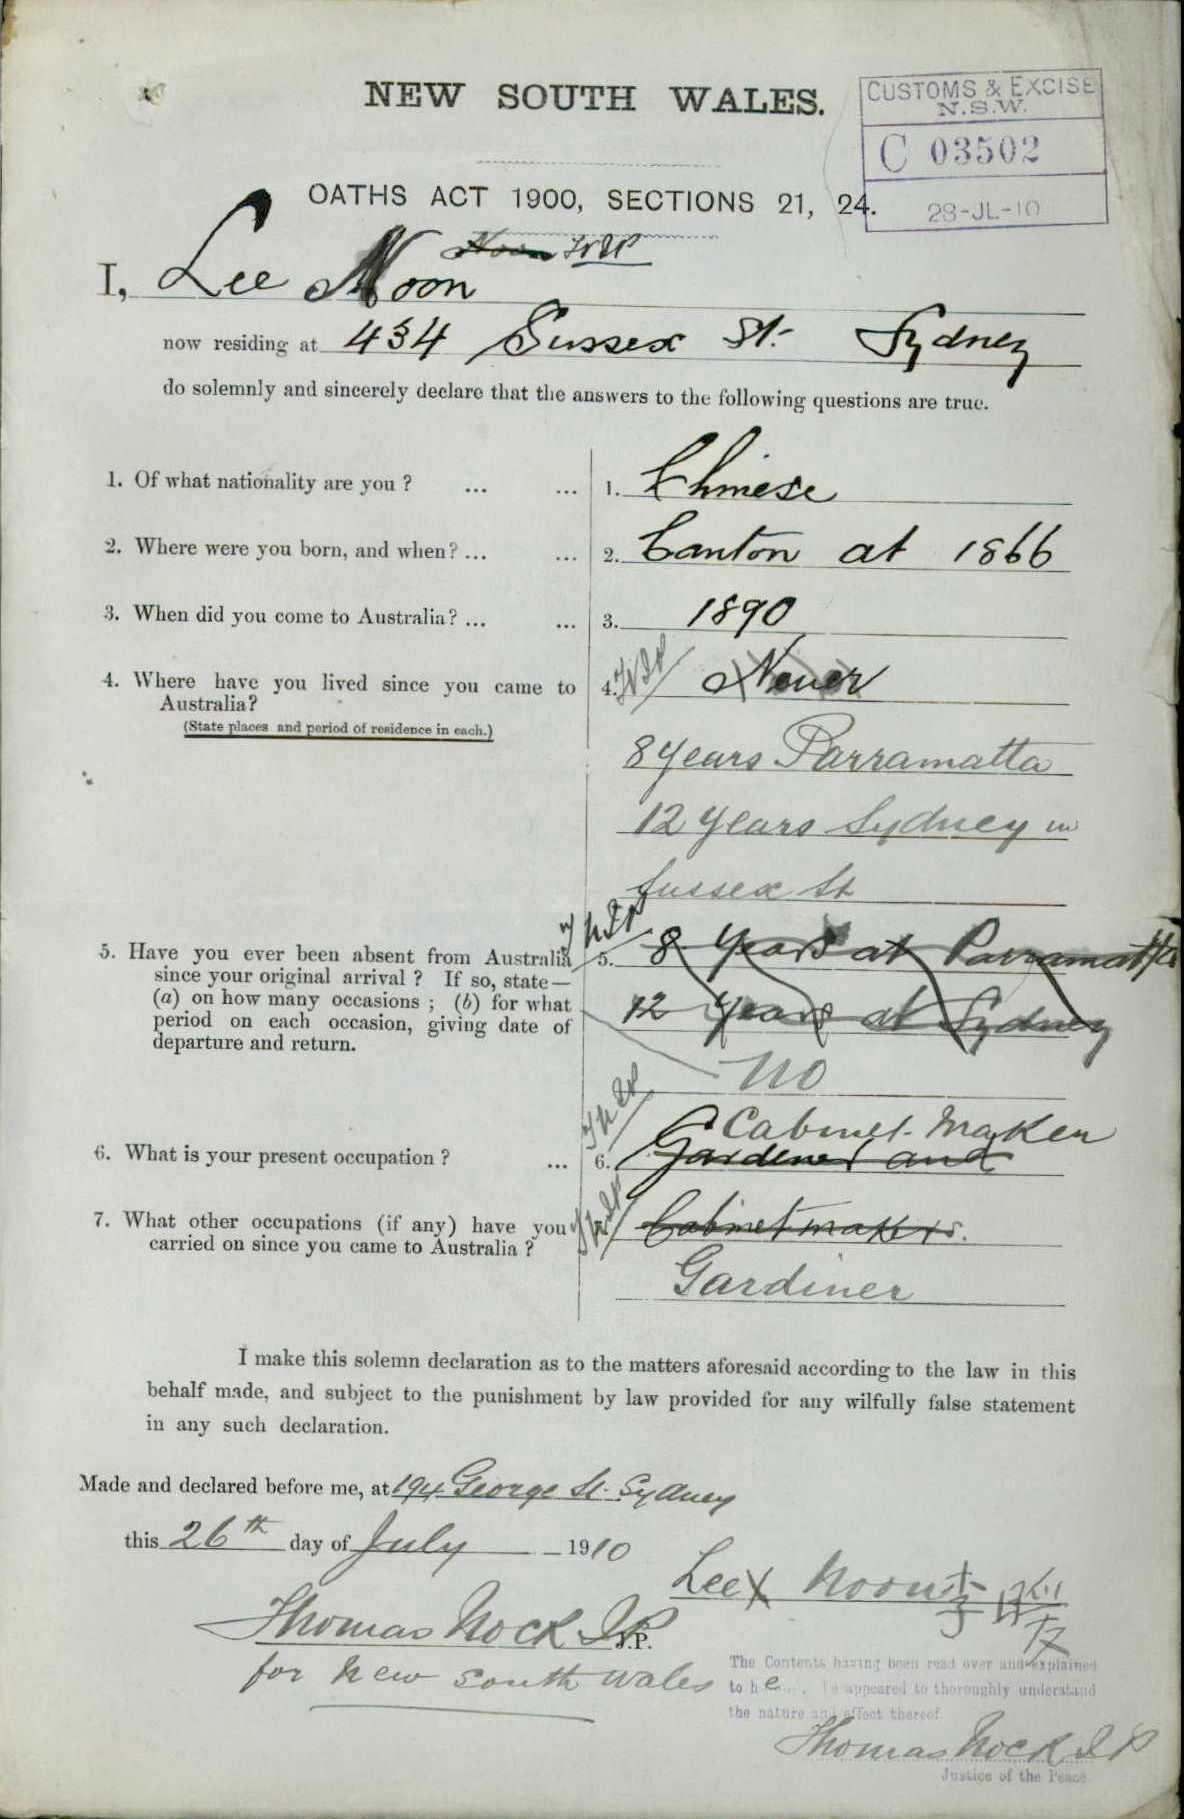 NEW SOUTH WALES.
CUSTOMS & EXCISE
N.S.W.
C 03502
28-JL-10
OATHS ACT 1900, SECTIONS 21, 24.
Noon
I, Lee Noon
now residing at 434 Sussex St. Sydney
do solemnly and sincerely declare that the answers to the following questions are true.
1. Of what nationality are you ? ... ... 1. Chinese
2. Where were you born, and when? ... ... 2. Canton at 1866
3. When did you come to Australia? ... ... 3. 1890
4. Where have you lived since you came to 4. Never
Australia?
(State places and period of residence in each.)
8 years Parramatta
12 years Sydney in
Sussex St
5. Have you ever been absent from Australia 5. 8 years at Parramatta
since your original arrival ? If so, state—
(a) on how many occasions ; (b) for what 12 years at Sydney
period on each occasion, giving date of
departure and return.
No
Cabinet-Maker
6. What is your present occupation ? ... 6. Gardener and
7. What other occupations (if any) have you Cabinetmakers.
carried on since you came to Australia ?
Gardiner
I make this solemn declaration as to the matters aforesaid according to the law in this
behalf made, and subject to the punishment by law provided for any wilfully false statement
in any such declaration.
Made and declared before me, at 194 George St. Sydney
this 26th day of July 1910
Lee X Noon
Thomas Nock JP
J.P.
for New South Wales
The Contents having been read over and explained
to he appeared to thoroughly understand
the nature and effect thereof
Thomas Nock JP
Justice of the Peace